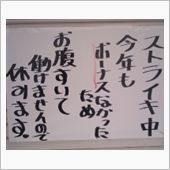 ストライキ中
今年も
ボーナスなかった
ため
お腹すいて
働けませんので
休みます。